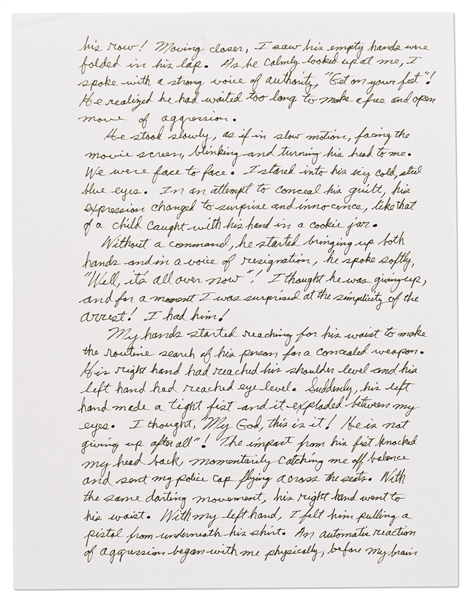 his row! Moving closer, I saw his empty hands were
folded in his lap. As he calmly looked up at me, I
spoke with a strong voice of authority, "Get on your feet"!
He realized he had waited too long to make a free and open
move of aggression.
He stood slowly, as if in slow motion, facing the
movie screen, blinking and turning his head to me.
We were face to face. I stared into his icy cold, steel
blue eyes. In an attempt to conceal his guilt, his
expression changed to surprise and innocence, like that
of a child caught with his hand in a cookie jar.
Without a command, he started bringing up both
hands and in a voice of resignation, he spoke softly,
"Well, it's all over now"! I thought he was giving up,
and for a moment I was surprised at the simplicity of the
arrest! I had him!
My hands started reaching for his waist to make
the routine search of his person for a concealed weapon.
His right hand had reached his shoulder level and his
left hand had reached eye level. Suddenly, his left
hand made a tight fist and it exploded between my
eyes. I thought, "My God, this is it! He is not
giving up after all"! The impact from his fist knocked
my head back momentarily catching me off balance
and sent my police cap flying across the seats. With
the same darting movement, his right hand went to
his waist. With my left hand, I felt him pulling a
pistol from underneath his shirt. An automatic reaction
of aggression began with me physically, before my brain